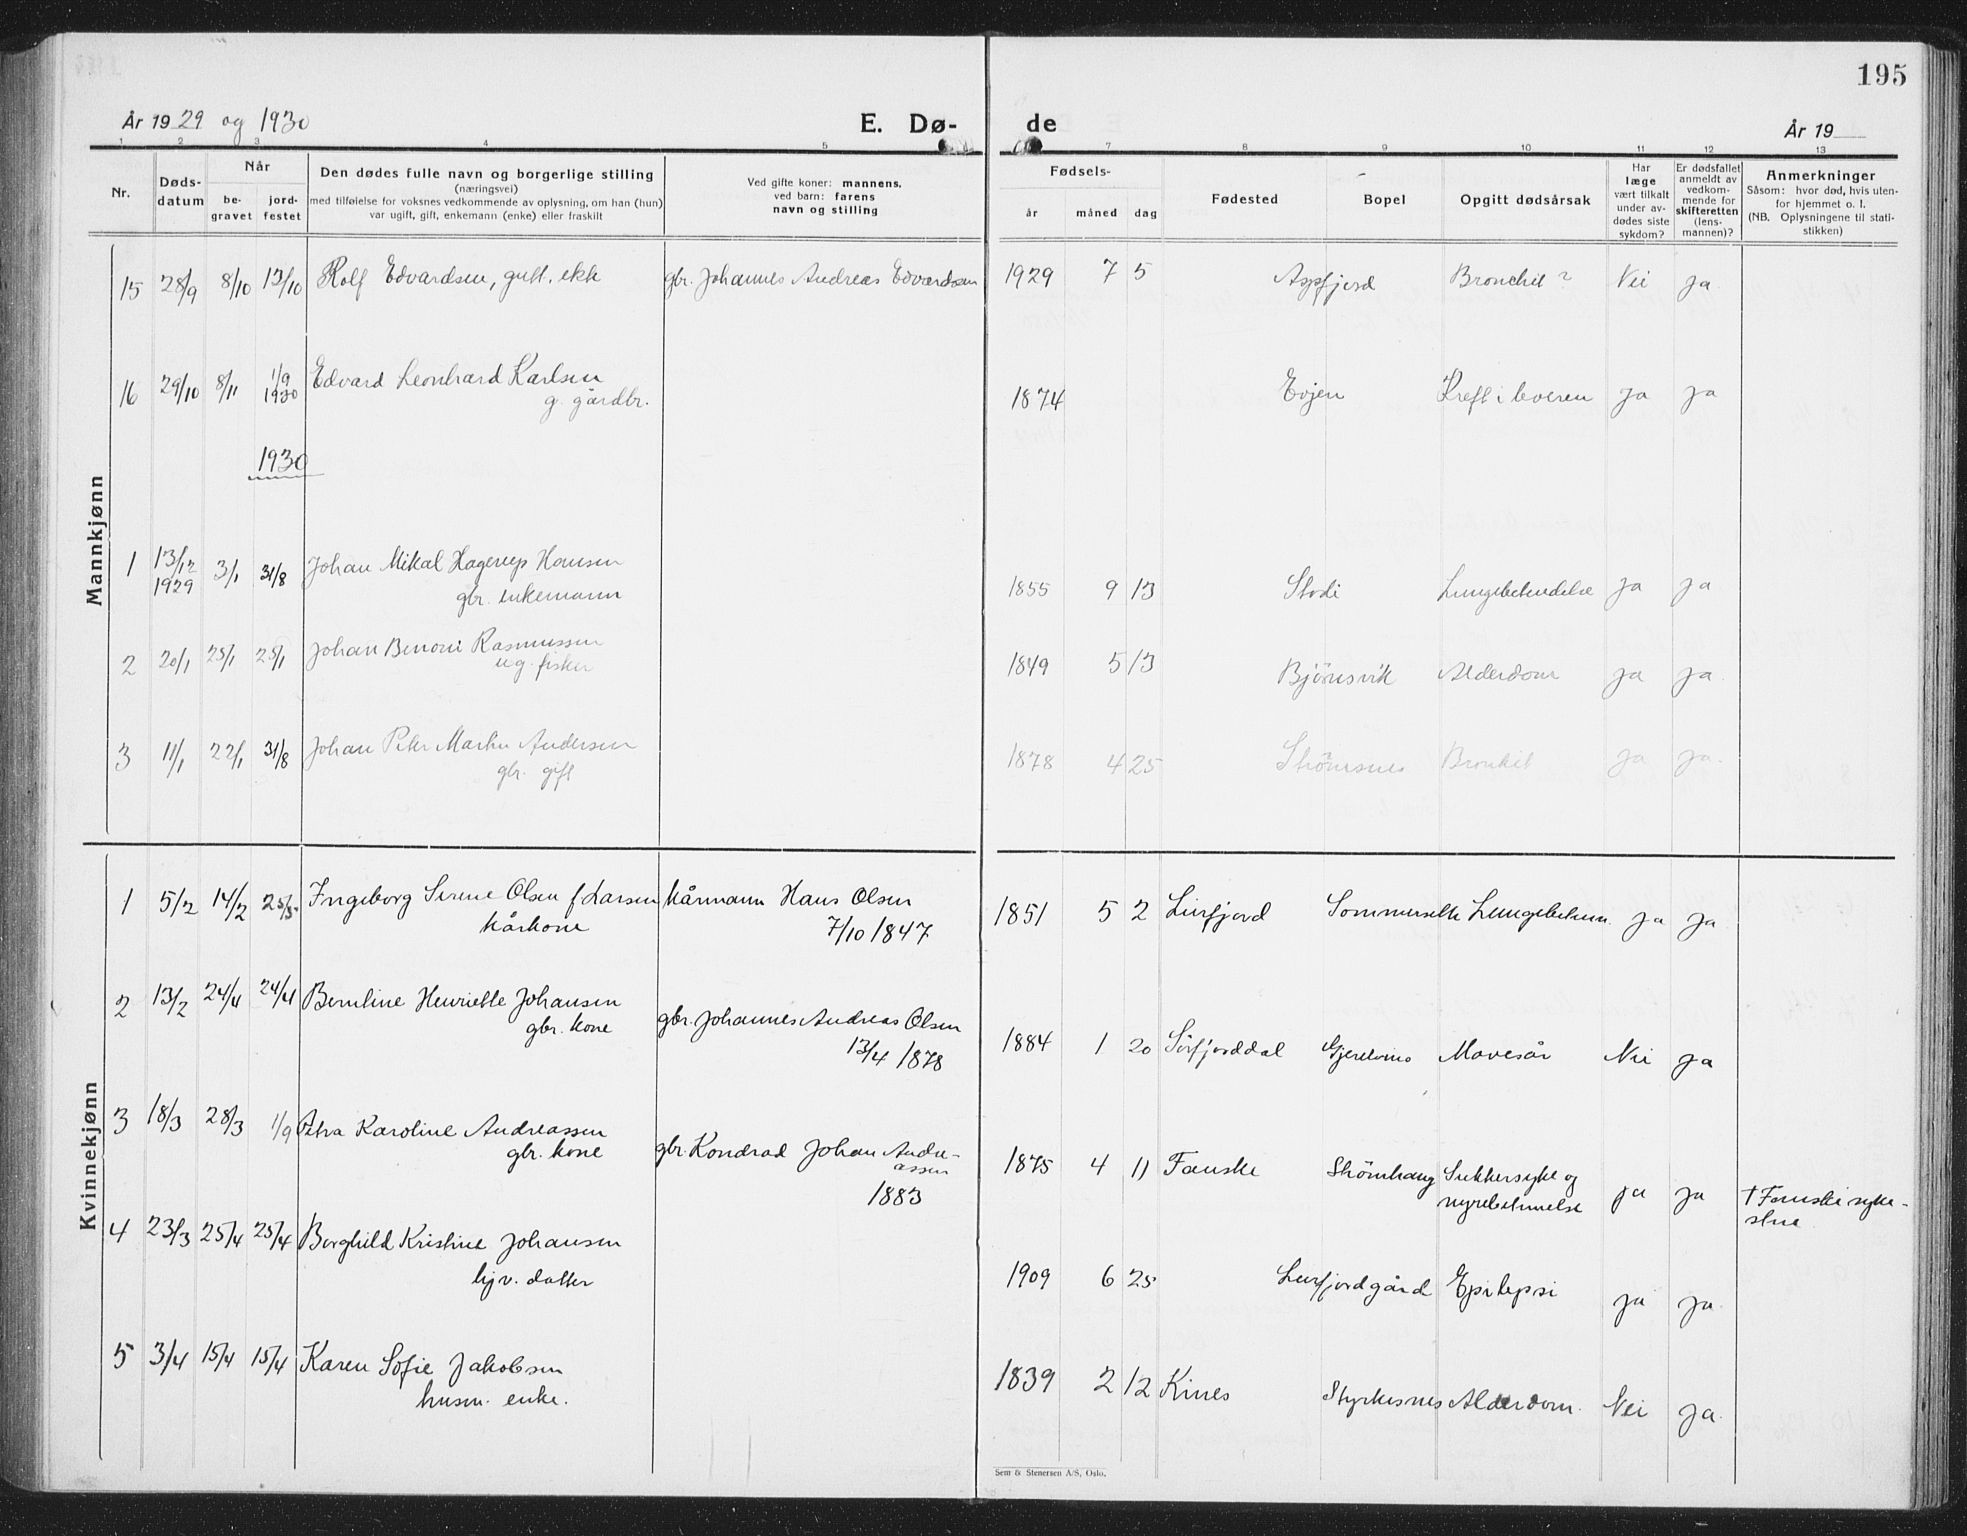 195
År 19 29 og 1930
E. Dø-
de
År 19
1 2 3 4 5 7 8 9 10 11 12 13
Nr.
Døds-
datum
Når
be-
gravet
jord-
festet
Den dødes fulle navn og borgerlige stilling
(næringsvei)
med tilføielse for voksnes vedkommende av oplysning, om han (hun)
var ugift, gift, enkemann (enke) eller fraskilt
Ved gifte koner: mannens,
ved barn: farens
navn og stilling
Fødsels-
år måned dag
Fødested
Bopel
Opgitt dødsårsak
Har
læge
vært tilkalt
under av-
dødes siste
sykdom?
Er dødsfallet
anmeldt av
vedkom-
mende for
skifteretten
(lens-
mannen)?
Anmerkninger
Såsom: hvor død, hvis uten-
for hjemmet o. l.
(NB. Oplysningene til stati-
stikken)
Mannkjønn
15 28/9 8/10 13/10 Rolf Edvardsen, gutt, ekte gbr. Johannes Andreas Edvardsen 1929 7 5 Bronchit? Nei ja
16 29/10 8/11 1/9 1930 Edvard Leonhard Karlsen
g. gårdbr. 1874 Evjen Kreft i leveren ja ja
1930
1 13/12 1929 3/1 31/8 Johan Mikal Hagerup Hansen
gbr. enkemann 1855 9 13 Stodi Lungebetendelse ja ja
2 20/1 25/1 25/1 Johan Benoni Rasmussen
ug. fisker 1849 5 13 Bjönsvik Alderdom ja ja
3 11/1 22/1 31/8 Johan Peter Martin Andersen
gbr. gift 1878 4 25 Strömsnes Bronkit ja ja.
Kvinnekjønn
1 5/2 14/2 25/5 Ingeborg Serine Olsen f Larsen kårmann Hans Olsen
kårkone 7/10 1847 1851 5 2 Leirfjord Sommersette Lungebeten. ja ja
2 13/2 24/4 24/4 Berntine Henriette Johansen
gbr. kone gbr. Johannes Andreas Olsen
13/4 1878 1884 1 20 Sörfjorddal Mavesår Nei ja
3 18/3 28/3 1/9 Petra Karoline Andreassen
gbr. kone gbr. Kondrad Johan Andre-
assen
1883 1875 4 11 Fauske Strömhaug Sukkersyke og
nyrebetennelse ja ja † Fauske syke-
stue
4 23/3 25/4 25/4 Borghild Kristine Johansen
hjv. datter 1909 6 25 Leirfjordgård Epilepsi ja ja
5 3/4 15/4 15/4 Karen Sofie Jakobsen
husm. enke. 1839 2 12 Kines Styrkesnes Alderdom. Nei ja.
Sem & Stenersen A/S, Oslo.